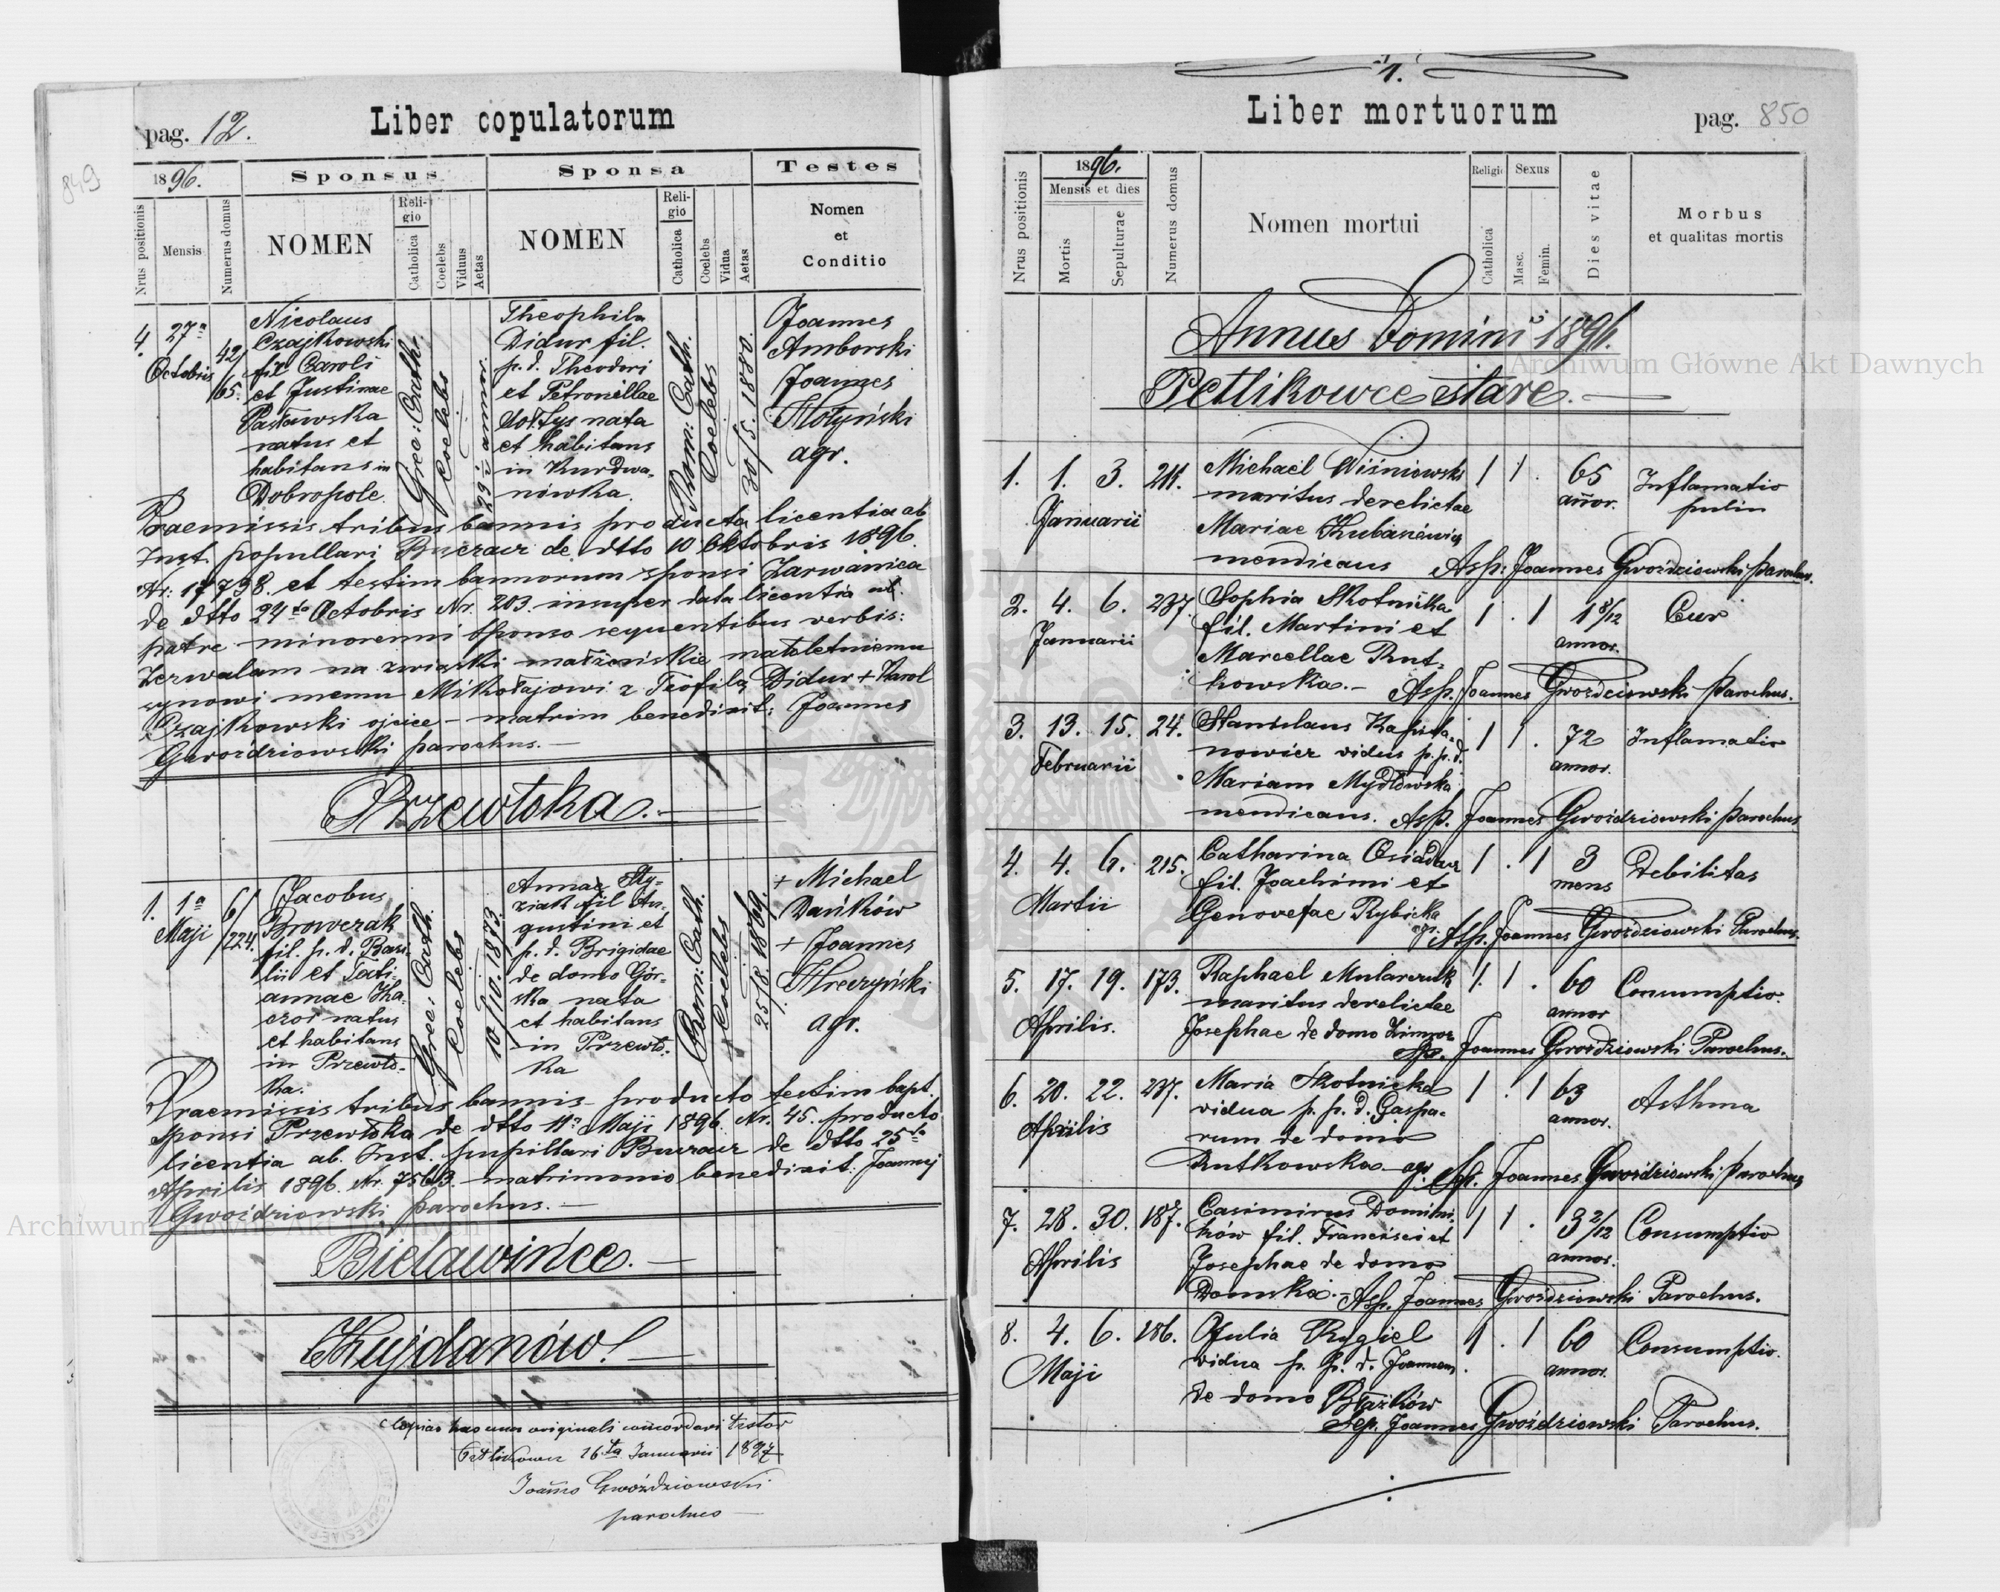 849
pag. 12.
Liber copulatorum
1896.
Sponsus
Sponsa
Testes
Nrus positionis
Mensis
Numerus domus
NOMEN
Religio
Catholica
Coelebs
Viduus
Aetas
NOMEN
Religio
Catholica
Coelebs
Vidua
Aetas
Nomen
et
Conditio
4.
27a
Octobris
42/
65.
Nicolaus
Czajkowski
fil Caroli
et Justinae
Pasławska
natus et
habitans in
Dobropole.
Grec: Cath:
Coelebs
23 annor.
Theophila
Didur fil.
p. d. Theodori
et Petronillae
Sołtys nata
et habitans
in Kurdwa-
nówka.
Rom: Cath.
Coelebs
30/5. 1880.
Joannes
Amborski
Joannes
Hołyński
agr.
Praemissis tribus bannis producta licentia ab
Inst. popullari Buczacz de dtto 10 Oktobris 1896.
Nr: 17798. et testim bannorum sponsi Zarwanica
de dtto 24to Octobris Nr. 203. insuper data licentia ab.
patre minorenni sponso sequentibus verbis:
Zezwalam na związki małżeńskie małoletniemu
synowi memu Mikołajowi z Teofilą Didur + Karol
Czajkowski ojciec - matrim benedixit: Joannes
Gwoździowski parochus. —
Przewłoka. —
1.
1a
Maji
6/
224.
Jacobus
Browczak
fil. p. d. Basi-
lii et Tati-
annae Ka-
czor natus
et habitans
in Przewło-
ka.
Grec: Cath.
Coelebs
10/10. 1873.
Annae Sty-
ziak fil Au-
gustini et
p. d. Brigidae
de domo Gór-
ska nata
et habitans
in Przewło-
ka
Rom: Cath.
Coelebs
25/8 1869.
+ Michael
Dańków
+ Joannes
Hreczyński
agr.
Praemissis tribus bannis producto testim bapt.
sponsi Przewłoka de dtto 11a Maji 1896. Nr. 45. producto
licentia ab. Inst. pupillari Buczacz de dtto 25to
Aprilis 1896. Nr. 7563. matrimonio benedixit. Joannes
Gwoździowski parochus. —
Bielawińce. —
Kujdanów! —
Copias has cum originali concordari testor
Petlikowce 16ta Januarii 1897
Joannes Gwóździowski
parochus —
1.
Liber mortuorum
pag. 850
Nrus positionis
1896.
Mensis et dies
Mortis
Sepulturae
Numerus domus
Nomen mortui
Religio
Catholica
Sexus
Masc.
Femin.
Dies vitae
Morbus
et qualitas mortis
Annus Domini 1896.
Petlikowce stare. —
1. 1. 3. 211. Michael Wiśniowski 1 1 . 65 Inflamatio
Januarii maritus derelictae annor. pulm
Mariae Kubasiewicz
mendicans Asp: Joannes Gwoździowski parochus.
2. 4. 6. 237. Sophia Skotnicka 1 . 1 1 8/12
Januarii fil. Martini et annor.
Marcellae Rut-
kowska. - Asp. Joannes Gwoździowski Parochus.
3. 13. 15. 24. Stanislaus Kapista- 1 1 . 72 Inflamatio
Februarii nowicz vidus p. p. d. annor.
Mariam Mydłowska
mendicans. Asp. Joannes Gwoździowski parochus
4. 4. 6. 215. Catharina Osiadacz 1 . 1 3 Debilitas
Martii fil. Joachimi et mens
Genovefae Rybicka
agr. Asp. Joannes Gwoździowski Parochus.
5. 17. 19. 173. Raphael Mularczuk 1. 1 . 60 Consumptio.
Aprilis. maritus derelictae annor
Josephae de domo Zimroz
Asp. Joannes Gwoździowski Parochus.
6. 20. 22. 237. Maria Skotnicka 1 . 1 63 Asthma
Aprilis vidua p. p. d. Gaspa- annor.
rum de domo
Rutkowska agr. Asp. Joannes Gwoździowski parochus
7. 28. 30. 187. Casimirus Domini- 1 1 . 3 2/12 Consumptio
Aprilis ków fil. Francisci et annor.
Josephae de domo
Domska. - Asp. Joannes Gwoździowski Parochus.
8. 4. 6. 186. Julia Rygiel 1 . 1 60 Consumptio.
Maji vidua p. p. d. Joannem. annor.
de domo Błażków
Sep. Joannes Gwoździowski Parochus.
Archiwum Główne Akt Dawnych
Archiwum Główne Akt Dawnych